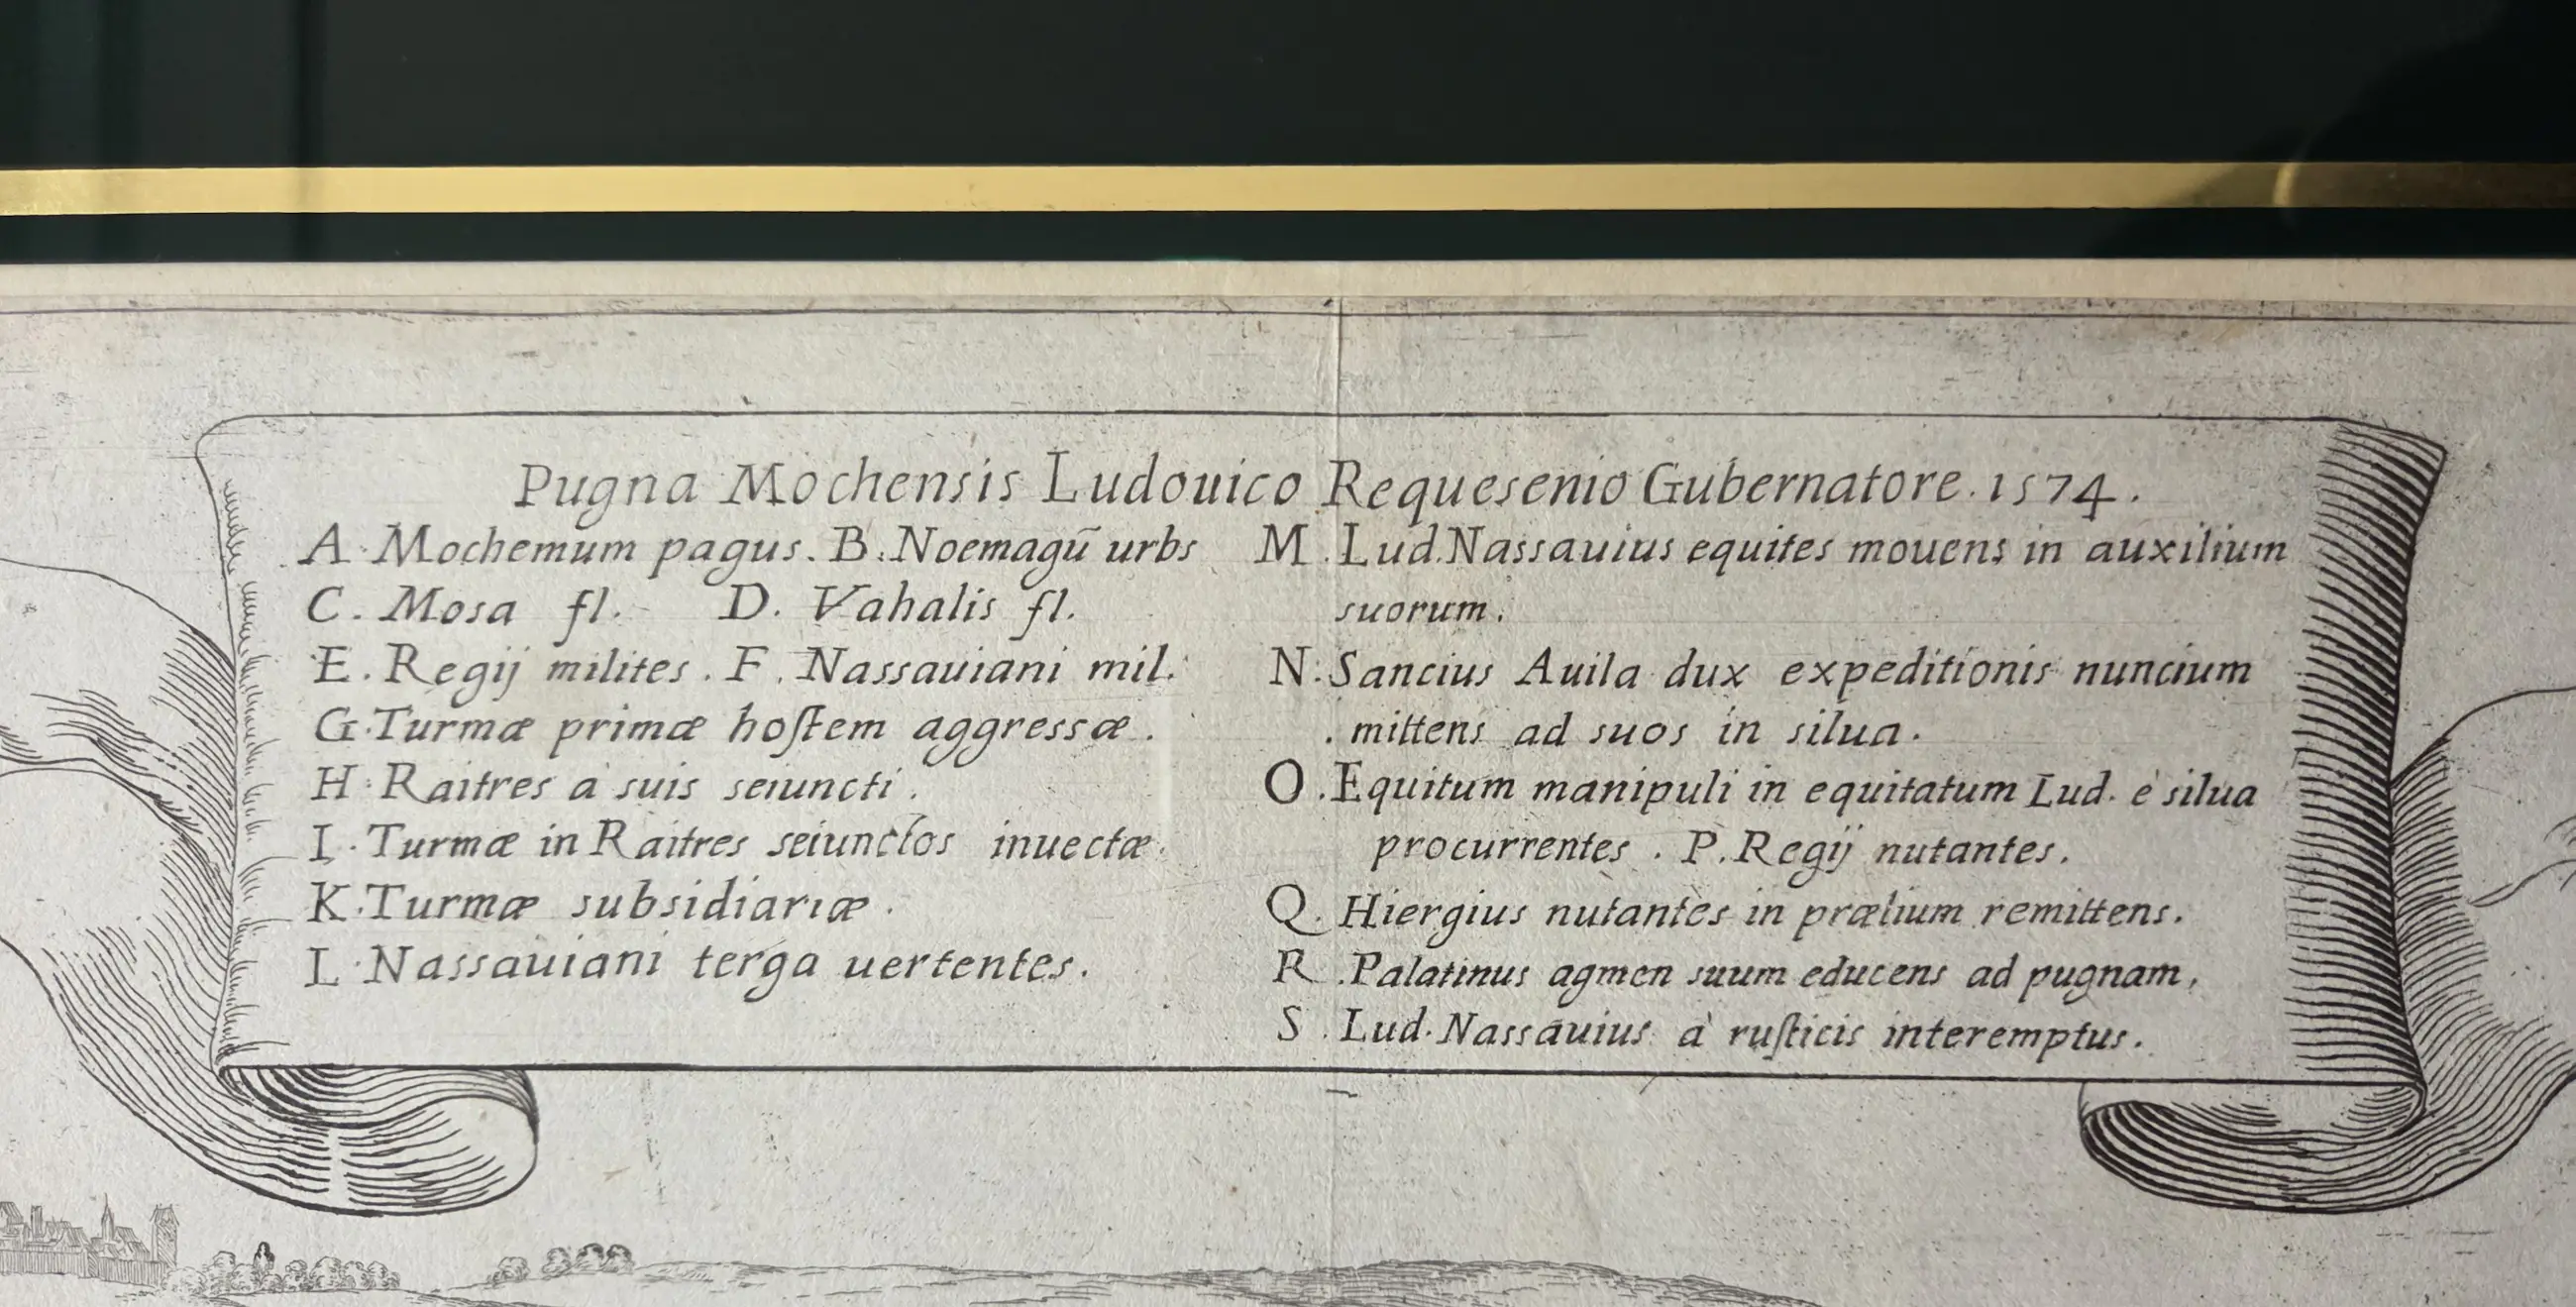 Pugna Mochensis Ludouico Requesenio Gubernatore. 1574.
A. Mochemum pagus. B. Noemagū urbs
C. Mosa fl. D. Vahalis fl.
E. Regij milites. F. Nassauiani mil.
G. Turmæ primæ hoſtem aggressæ.
H. Raitres à suis seiuncti.
I. Turmæ in Raitres seiunctos inuectæ.
K. Turmæ subsidiariæ.
L. Nassauiani terga uertentes.
M. Lud. Nassauius equites mouens in auxilium
suorum.
N. Sancius Auila dux expeditionis nuncium
mittens ad suos in silua.
O. Equitum manipuli in equitatum Lud. è silua
procurrentes. P. Regij nutantes.
Q. Hiergius nutantes in prælium remittens.
R. Palatinus agmen suum educens ad pugnam,
S. Lud. Nassauius à ruſticis interemptus.